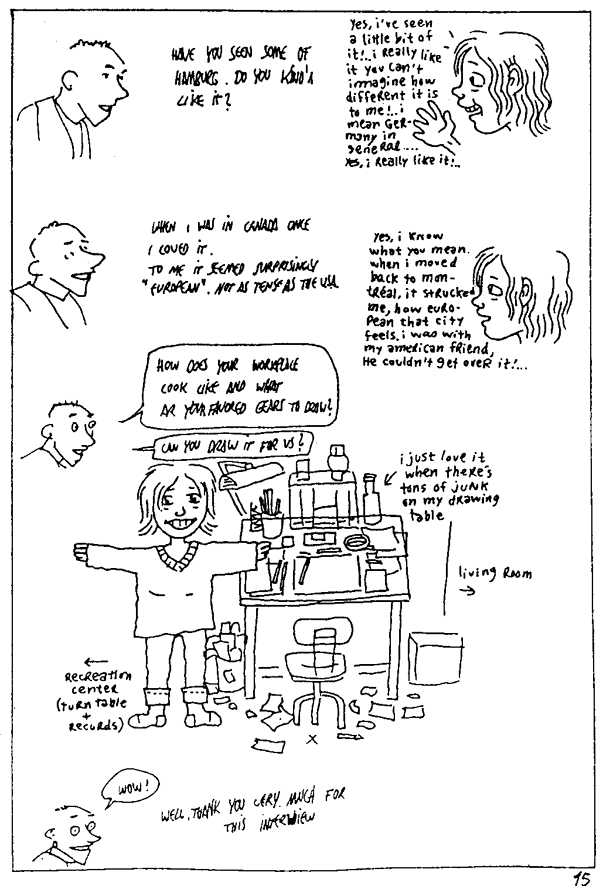 HAVE YOU SEEN SOME OF
HAMBURG. DO YOU KIND'A
LIKE IT?
Yes, i've seen
a little bit of
it!.. i really like
it you can't
imagine how
different it is
to me!.. i
mean GER-
many in
general....
Yes, i really like it!..
WHEN I WAS IN CANADA ONCE
I LOVED IT.
TO ME IT SEEMED SURPRISINGLY
"EUROPEAN". NOT AS TENSE AS THE USA
Yes, i know
what you mean.
when i moved
back to mon-
tréal, it strucked
me, how euro-
pean that city
feels. i was with
my american friend,
He couldn't get over it!...
HOW DOES YOUR WORKPLACE
LOOK LIKE AND WHAT
AR YOUR FAVORED GEARS TO DRAW?
CAN YOU DRAW IT FOR US?
i just love it
when there's
tons of junk
on my drawing
table
living room
→
←
Recreation
center
(turn table
+
records)
X
WOW!
WELL, THANK YOU VERY MUCH FOR
THIS INTERVIEW
15